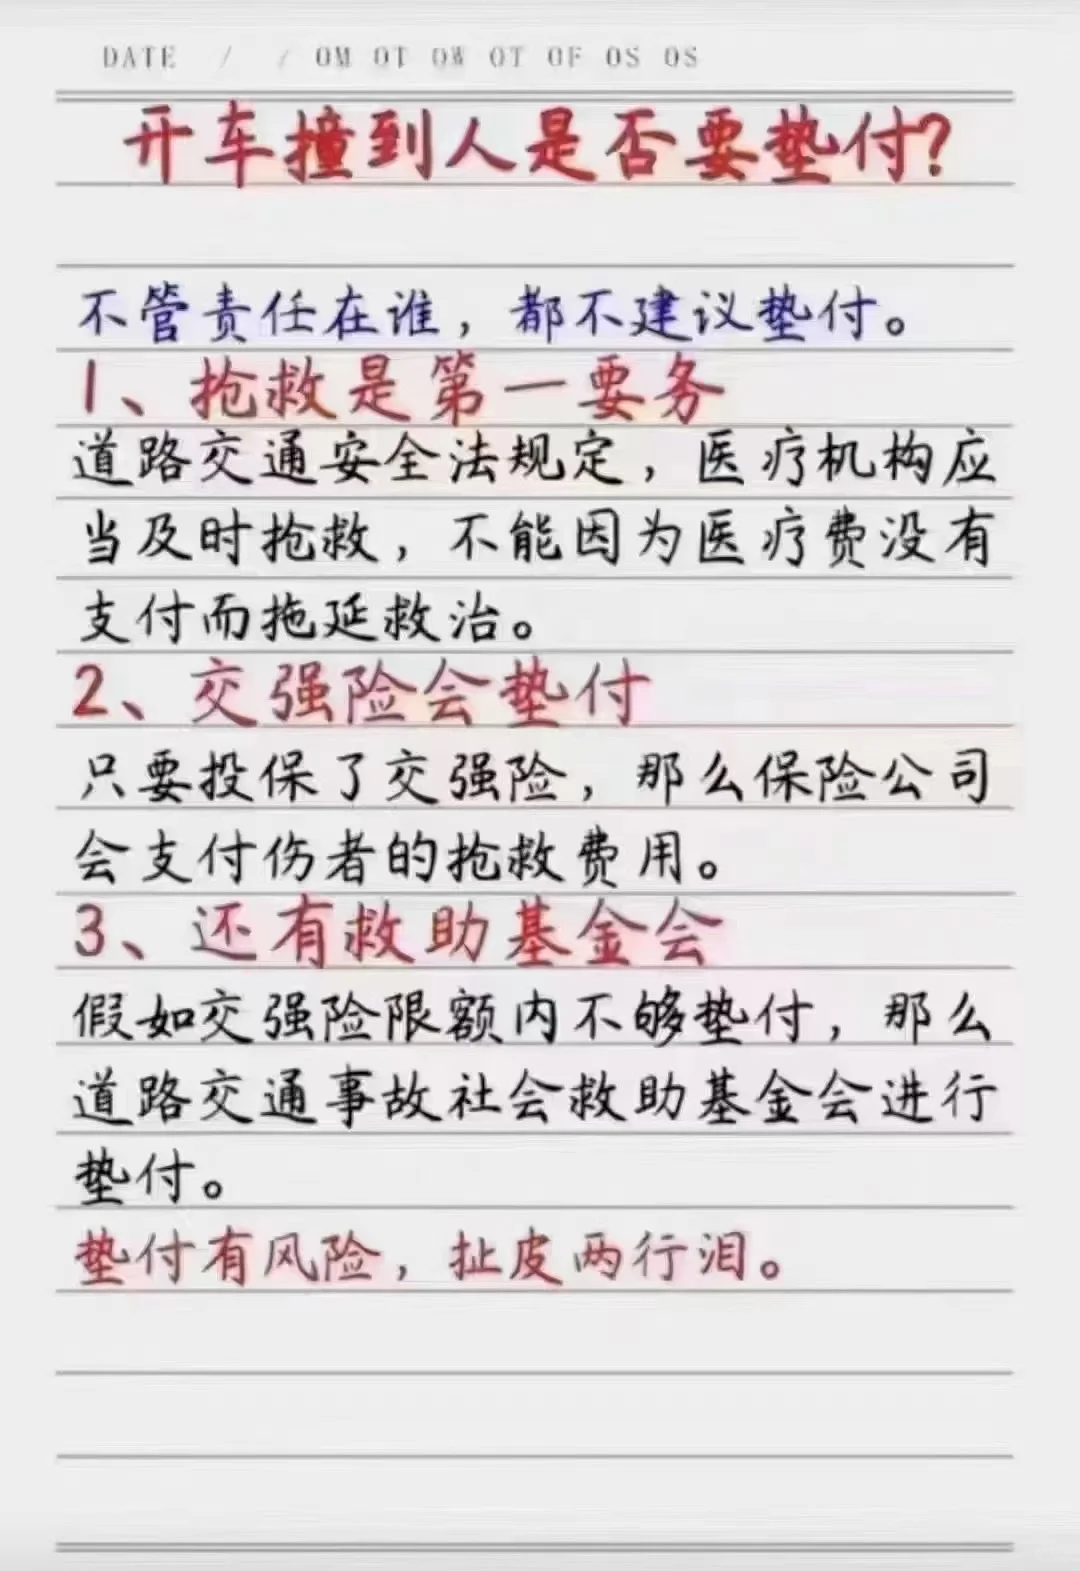 DATE / / OM OT OW OT OF OS OS
开车撞到人是否要垫付?
不管责任在谁，都不建议垫付。
1、抢救是第一要务
道路交通安全法规定，医疗机构应
当及时抢救，不能因为医疗费没有
支付而拖延救治。
2、交强险会垫付
只要投保了交强险，那么保险公司
会支付伤者的抢救费用。
3、还有救助基金会
假如交强险限额内不够垫付，那么
道路交通事故社会救助基金会进行
垫付。
垫付有风险，扯皮两行泪。